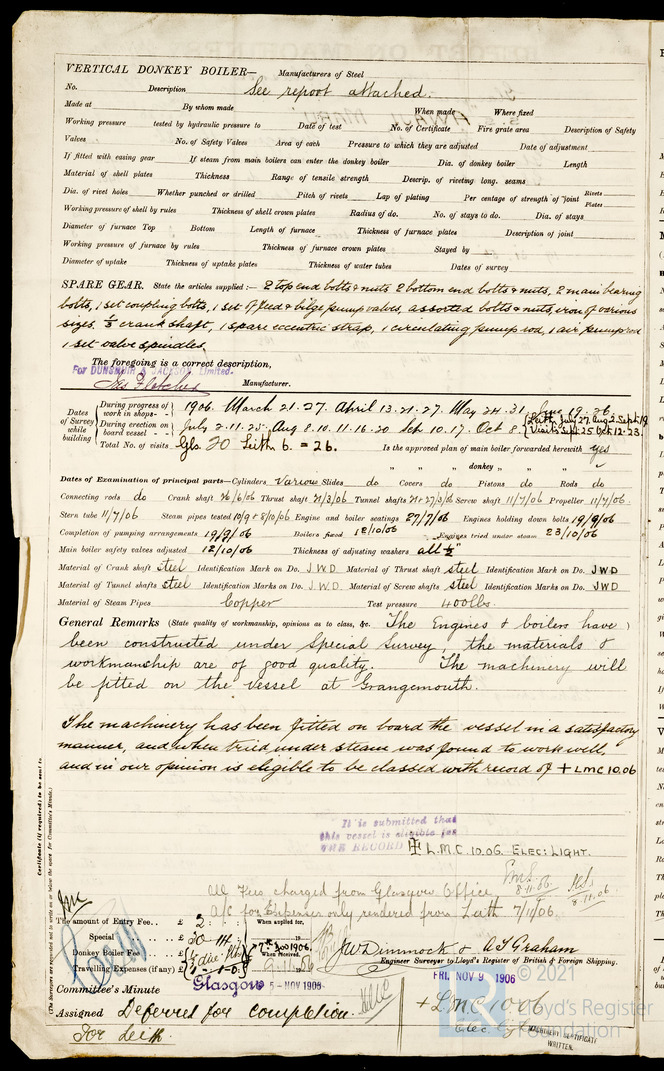 VERTICAL DONKEY BOILER— Manufacturers of Steel
No. Description See report attached.
Made at By whom made When made Where fixed
Working pressure tested by hydraulic pressure to Date of test No. of Certificate Fire grate area Description of Safety
Valves No. of Safety Valves Area of each Pressure to which they are adjusted Date of adjustment
If fitted with easing gear If steam from main boilers can enter the donkey boiler Dia. of donkey boiler Length
Material of shell plates Thickness Range of tensile strength Descrip. of riveting long. seams
Dia. of rivet holes Whether punched or drilled Pitch of rivets Lap of plating Per centage of strength of joint Rivets Plates
Working pressure of shell by rules Thickness of shell crown plates Radius of do. No. of stays to do. Dia. of stays
Diameter of furnace Top Bottom Length of furnace Thickness of furnace plates Description of joint
Working pressure of furnace by rules Thickness of furnace crown plates Stayed by
Diameter of uptake Thickness of uptake plates Thickness of water tubes Dates of survey
SPARE GEAR. State the articles supplied:— 2 top end bolts & nuts 2 bottom end bolts & nuts, 2 main bearing
bolts, 1 set coupling bolts, 1 set of feed & bilge pump valves, assorted bolts & nuts, iron of various
sizes, 1/3 crank shaft, 1 spare eccentric strap, 1 circulating pump rod, 1 air pump rod
1 set valve spindles,
The foregoing is a correct description,
For DUNSMUIR & JACKSON, Limited.
Jas Fletcher Manufacturer.
Dates of Survey while building
During progress of work in shops - - 1906. March 21. 27. April 13. 21. 27. May 24. 31. June 19. 26.
During erection on board vessel - - July 2. 11. 25. Aug 8. 10. 11. 16. 20 Sep 10. 17. Oct 8. Leith July 27 Aug 2. Sept 19 Visits Sept 25 Oct 12. 23.
Total No. of visits Gls. 20 Leith 6. = 26. Is the approved plan of main boiler forwarded herewith yes
" " " donkey " "
Dates of Examination of principal parts—Cylinders Various Slides do Covers do Pistons do Rods do
Connecting rods do Crank shaft 26/6/06 Thrust shaft 21/3/06 Tunnel shafts 21+27/3/06 Screw shaft 11/7/06 Propeller 11/7/06
Stern tube 11/7/06 Steam pipes tested 10/9 + 8/10/06 Engine and boiler seatings 27/7/06 Engines holding down bolts 19/9/06
Completion of pumping arrangements 19/9/06 Boilers fixed 12/10/06 Engines tried under steam 23/10/06
Main boiler safety valves adjusted 12/10/06 Thickness of adjusting washers all ½"
Material of Crank shaft steel Identification Mark on Do. J.W.D Material of Thrust shaft steel Identification Mark on Do. JWD
Material of Tunnel shafts steel Identification Marks on Do. J.W.D. Material of Screw shafts steel Identification Marks on Do. JWD
Material of Steam Pipes Copper Test pressure 400 lbs.
General Remarks (State quality of workmanship, opinions as to class, &c. The Engines & boilers have
been constructed under Special Survey, the materials &
workmanship are of good quality. The machinery will
be fitted on the vessel at Grangemouth.
The machinery has been fitted on board the vessel in a satisfactory
manner, and when tried under steam was found to work well
and in our opinion is eligible to be classed with record of + LMC 10.06
It is submitted that
this vessel is eligible for
THE RECORD + L.M.C. 10.06. ELEC: LIGHT.
8.11.06
8.11.06
All Fees charged from Glasgow Office
A/c for Expenses only rendered from Leith 7/11/06.
Certificate (if required) to be sent to
(The Surveyors are requested not to write on or below the space for Committee's Minute.)
The amount of Entry Fee.. £ 2 : When applied for,
Special .. £ 30. 14.
Donkey Boiler Fee .. £ When received,
Travelling Expenses (if any) £
J.W. Dimmock & A T Graham
Engineer Surveyor to Lloyd's Register of British & Foreign Shipping.
Committee's Minute Glasgow 5 - NOV 1906
FRI. NOV 9 1906
Assigned Deferred for completion.
For Leith
+ L.M.C. 10.06
Elec. Lt
MACHINERY CERTIFICATE
WRITTEN.
© 2021
Lloyd's Register
Foundation